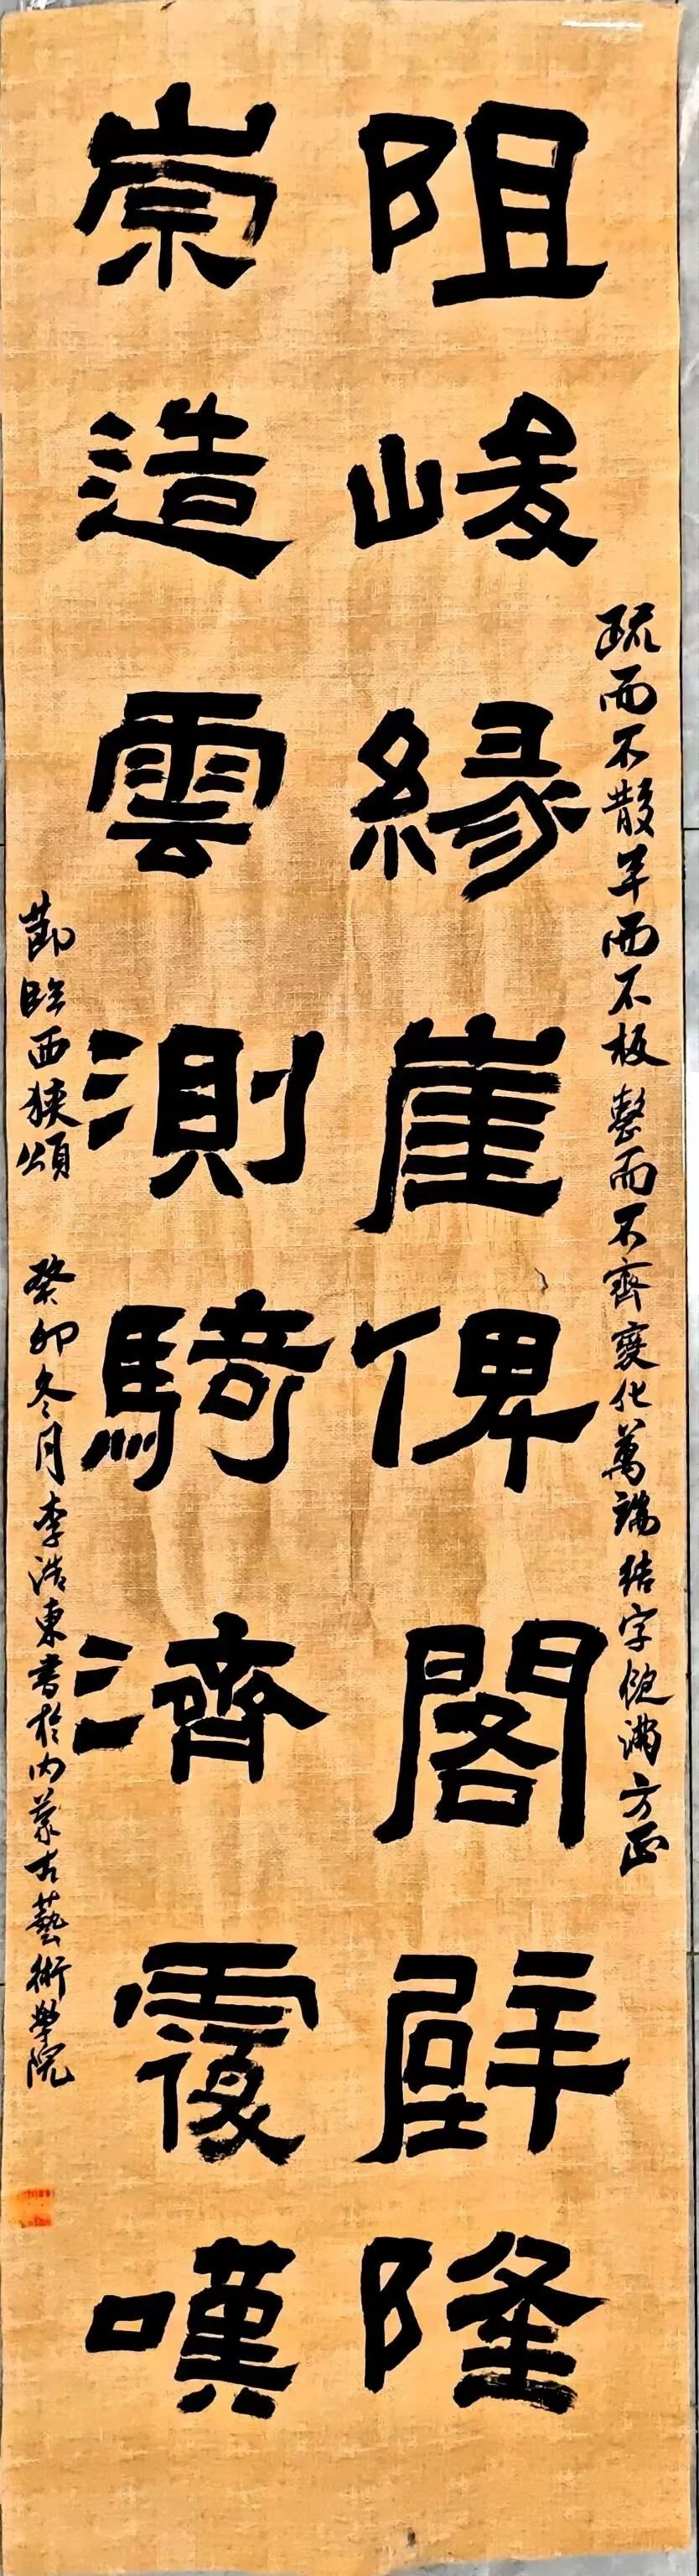 阻峻緣崖俾閣辟隆
崇造雲測騎濟霞嘆
疏而不散羊而不板整而不齊變化萬端結字飽滿方正
節臨西狹頌 癸卯冬月李浩東書於內蒙古藝術學院